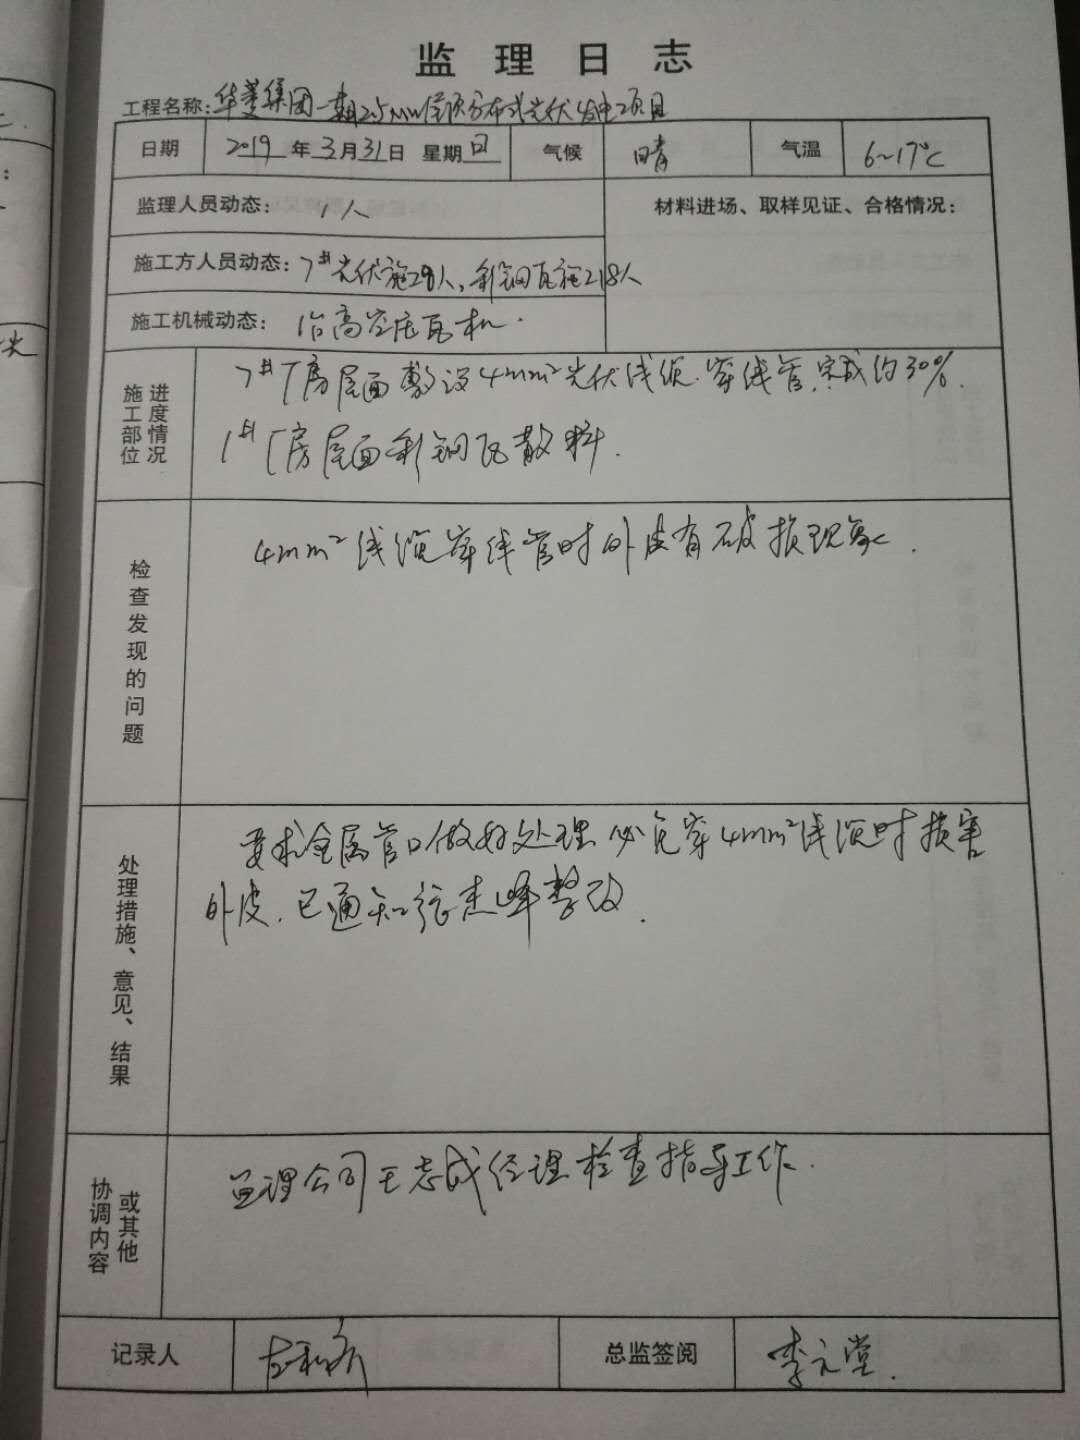 监理日志
工程名称:华菱集团一期2.5MW屋顶分布式光伏发电项目
日期 2019年3月31日 星期日 气候 晴 气温 6~17℃
监理人员动态: 1人
材料进场、取样见证、合格情况:
施工方人员动态: 7#光伏施工29人,彩钢瓦施工18人
施工机械动态: 1台高空压瓦机.
施工部位进度情况
7#厂房屋面敷设4mm²光伏线缆.穿线管.完成约30%.
1#厂房屋面彩钢瓦散料.
检查发现的问题
4mm²线缆穿线管时外皮有破损现象.
处理措施、意见、结果
要求金属管口做好处理 必免穿4mm²线缆时损害
外皮.已通知张杰峰整改.
协调内容或其他
监理公司王志成经理检查指导工作.
记录人 总监签阅 李元堂.